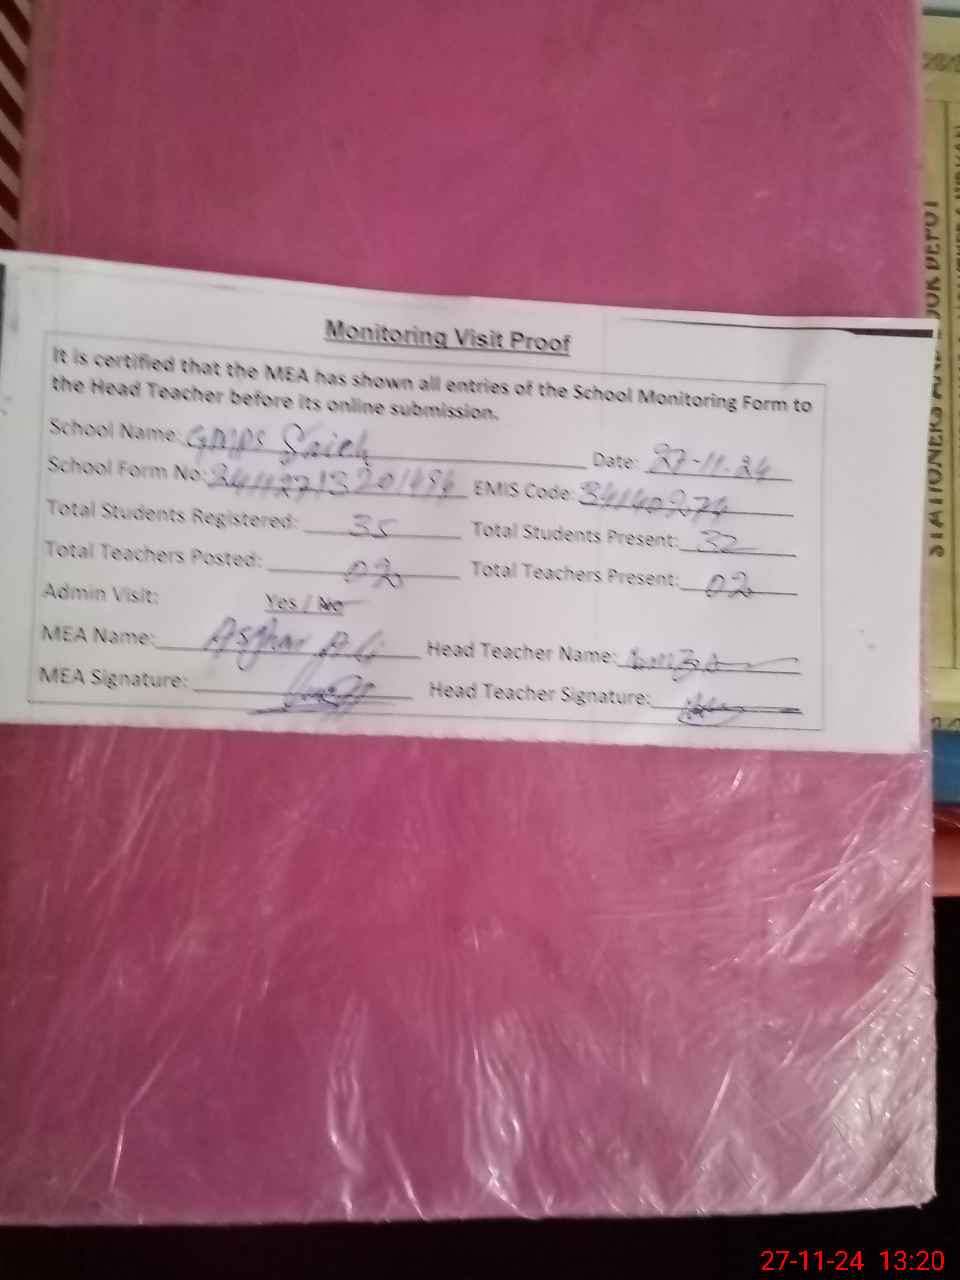 Monitoring Visit Proof
It is certified that the MEA has shown all entries of the School Monitoring Form to
the Head Teacher before its online submission.
School Name: GMPS Date: 27-11-24
School Form No: EMIS Code:
Total Students Registered: 35 Total Students Present: 32
Total Teachers Posted: 02 Total Teachers Present: 02
Admin Visit: Yes / No
MEA Name: Asghar Ali Head Teacher Name:
MEA Signature: Head Teacher Signature:
STATIONERS AND BOOK DEPOT
27-11-24 13:20